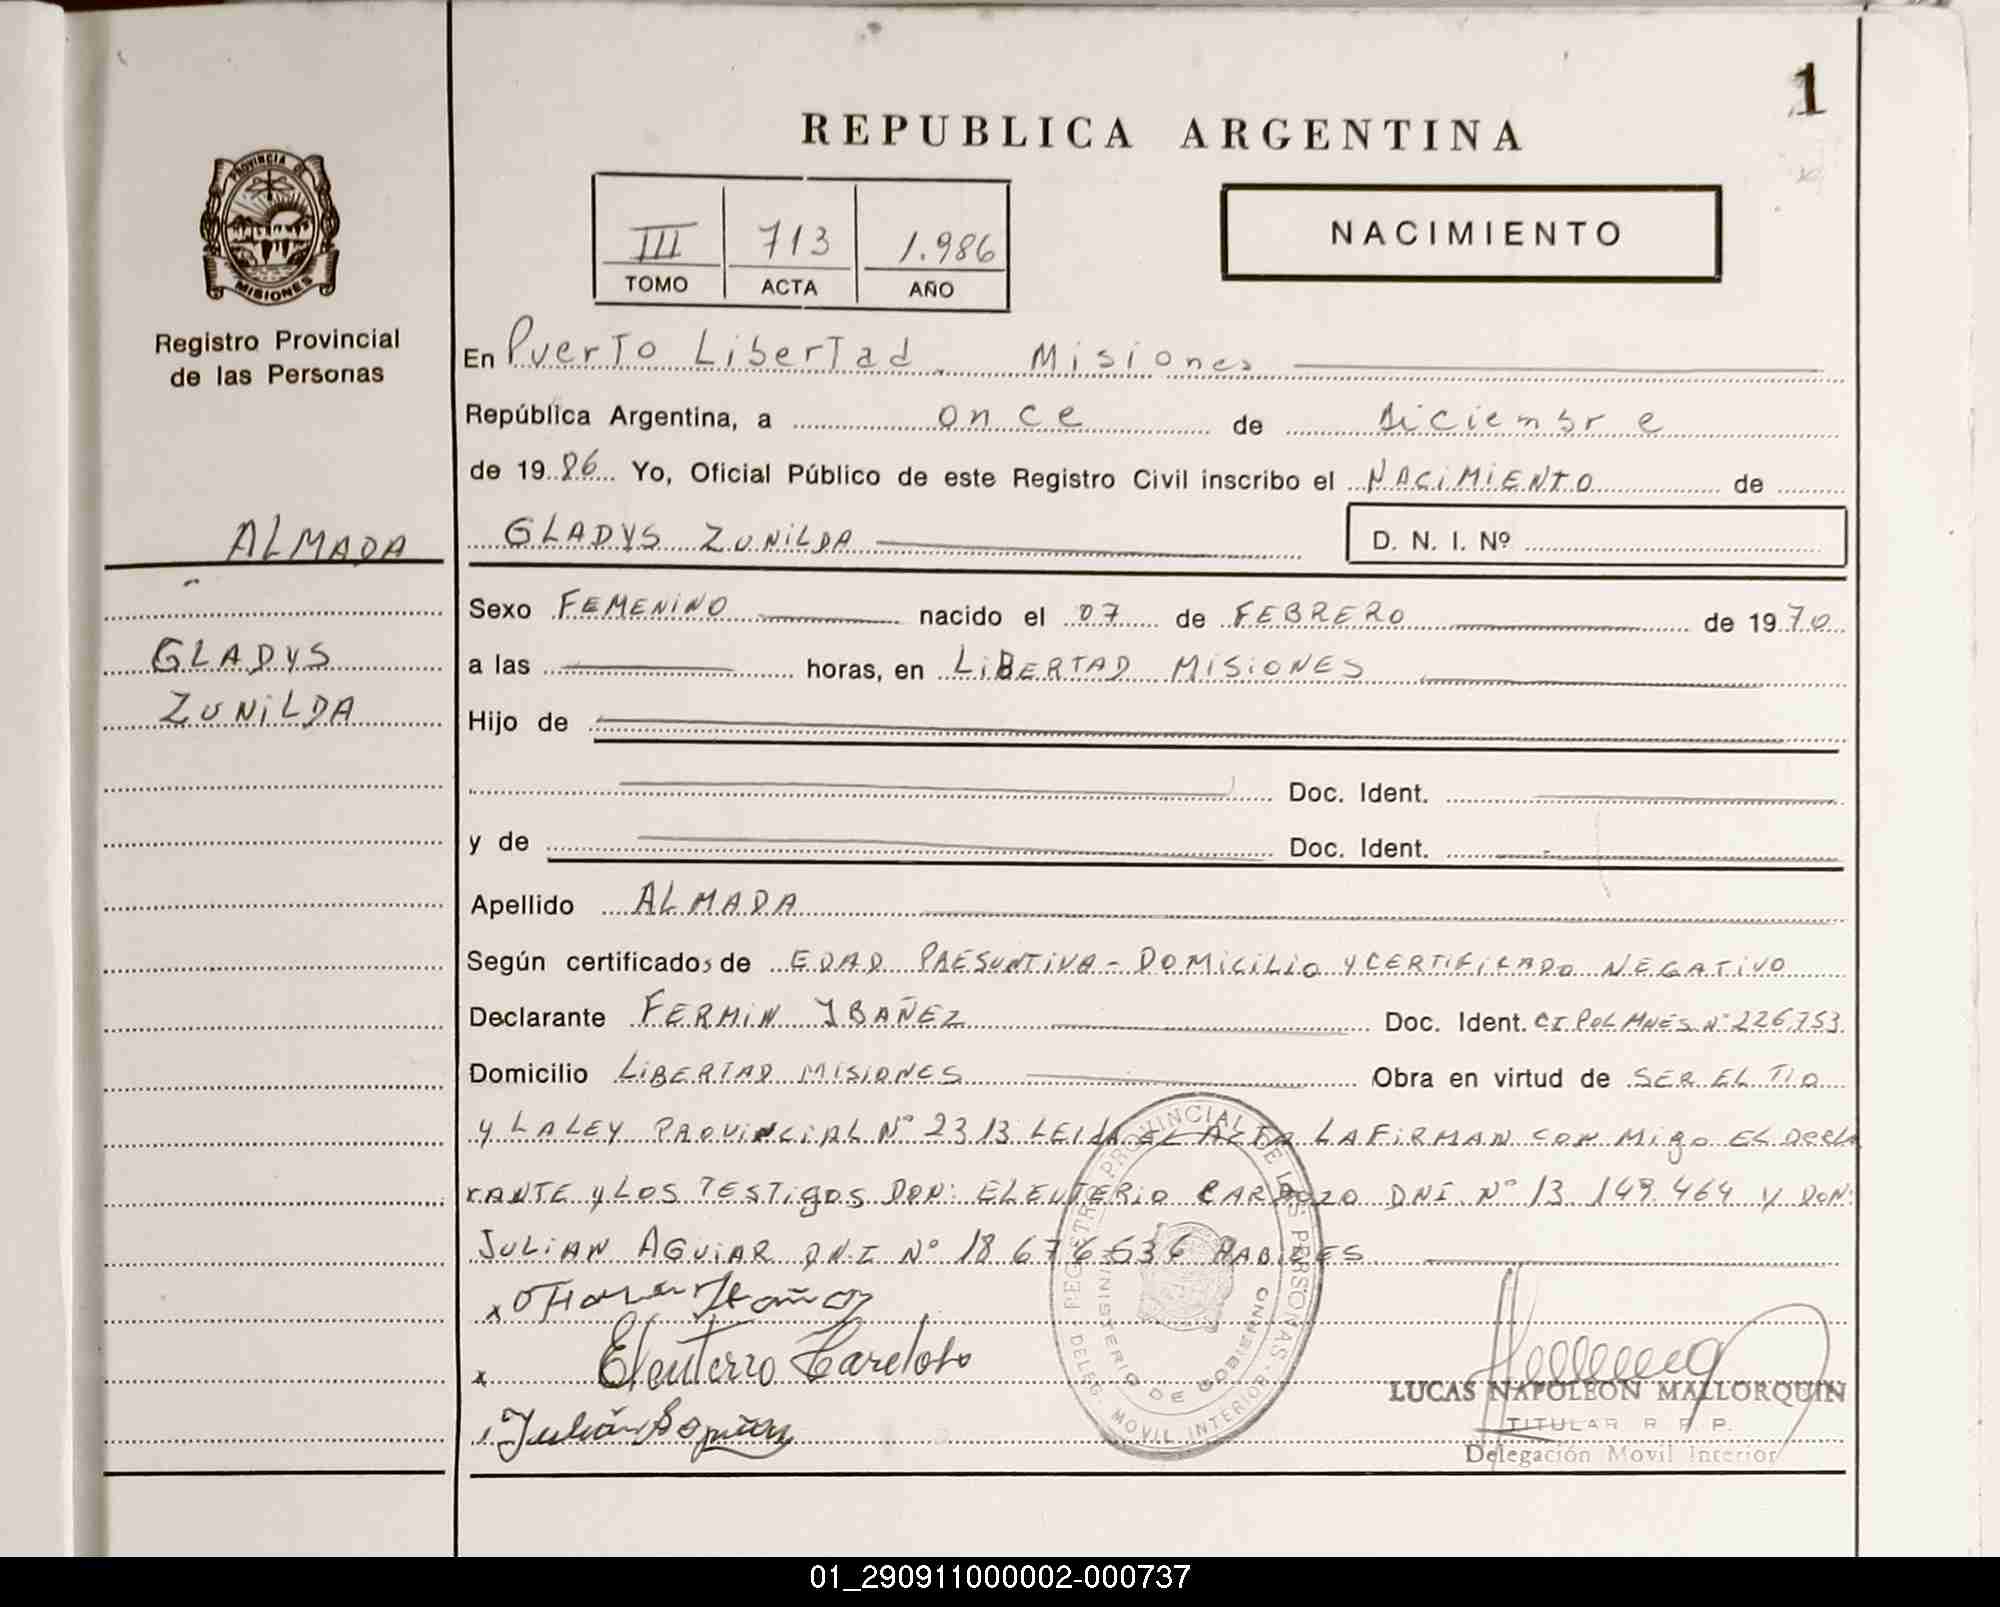 1
REPUBLICA ARGENTINA
PROVINCIA DE
MISIONES
Registro Provincial
de las Personas
III 713 1.986
TOMO ACTA AÑO
NACIMIENTO
En Puerto Libertad, Misiones
República Argentina, a once de diciembre
de 1986 Yo, Oficial Público de este Registro Civil inscribo el NACIMIENTO de
ALMADA
GLADYS ZUNILDA
D. N. I. Nº
Sexo FEMENINO nacido el 07 de FEBRERO de 1970
GLADYS
ZUNILDA
a las horas, en LIBERTAD MISIONES
Hijo de
Doc. Ident.
y de Doc. Ident.
Apellido ALMADA
Según certificados de EDAD PRESUNTIVA - DOMICILIO Y CERTIFICADO NEGATIVO
Declarante FERMIN YBAÑEZ Doc. Ident. CI. POL MNES Nº 226.753
Domicilio LIBERTAD MISIONES Obra en virtud de SER EL TIO
Y LA LEY PROVINCIAL Nº 2313 LEIDA EL ACTA LA FIRMAN CON MIGO EL DECLA
RANTE Y LOS TESTIGOS DON: ELEUTERIO CARDOZO DNI Nº 13.149.464 Y DON:
JULIAN AGUIAR DNI Nº 18 676 636 HABILES
x
x Eleuterio Cardozo
Julián
REGISTRO PROVINCIAL DE LAS PERSONAS
MINISTERIO DE GOBIERNO
DELEG. MOVIL INTERIOR
LUCAS NAPOLEON MALLORQUIN
TITULAR R. P. P.
Delegación Movil Interior
01_290911000002-000737